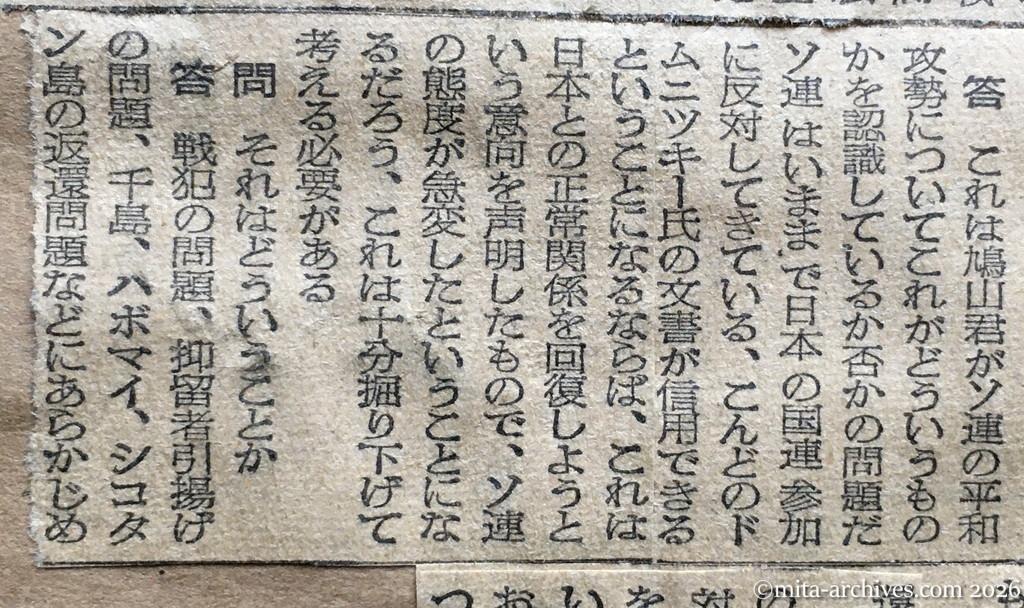 答　これは鳩山君がソ連の平和
攻勢についてこれがどういうもの
かを認識しているか否かの問題だ
ソ連はいままで日本の国連参加
に反対してきている、こんどのド
ムニツキー氏の文書が信用できる
ということになるならば、これは
日本との正常関係を回復しようと
いう意向を声明したもので、ソ連
の態度が急変したということにな
るだろう、これは十分掘り下げて
考える必要がある
問　それはどういうことか
答　戦犯の問題、抑留者引揚げ
の問題、千島、ハボマイ、シコタ
ン島の返還問題などにあらかじめ
©mita-archives.com 2026